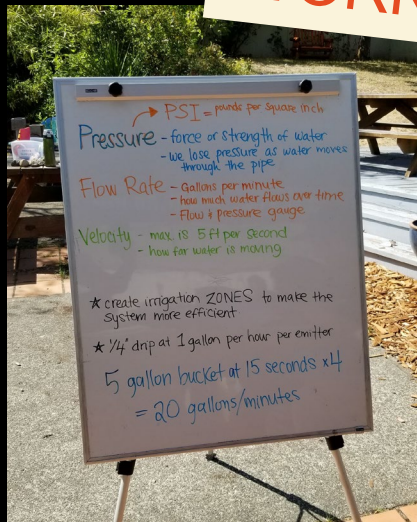 PSI = pounds per square inch
Pressure - force or strength of water
- we lose pressure as water moves
through the pipe
Flow Rate - Gallons per minute
- how much water flows over time
- Flow & pressure gauge
Velocity - max is 5 ft per second
- how far water is moving
* create irrigation ZONES to make the
system more efficient
* 1/4" drip at 1 gallon per hour per emitter
5 gallon bucket at 15 seconds x4
= 20 gallons/minutes